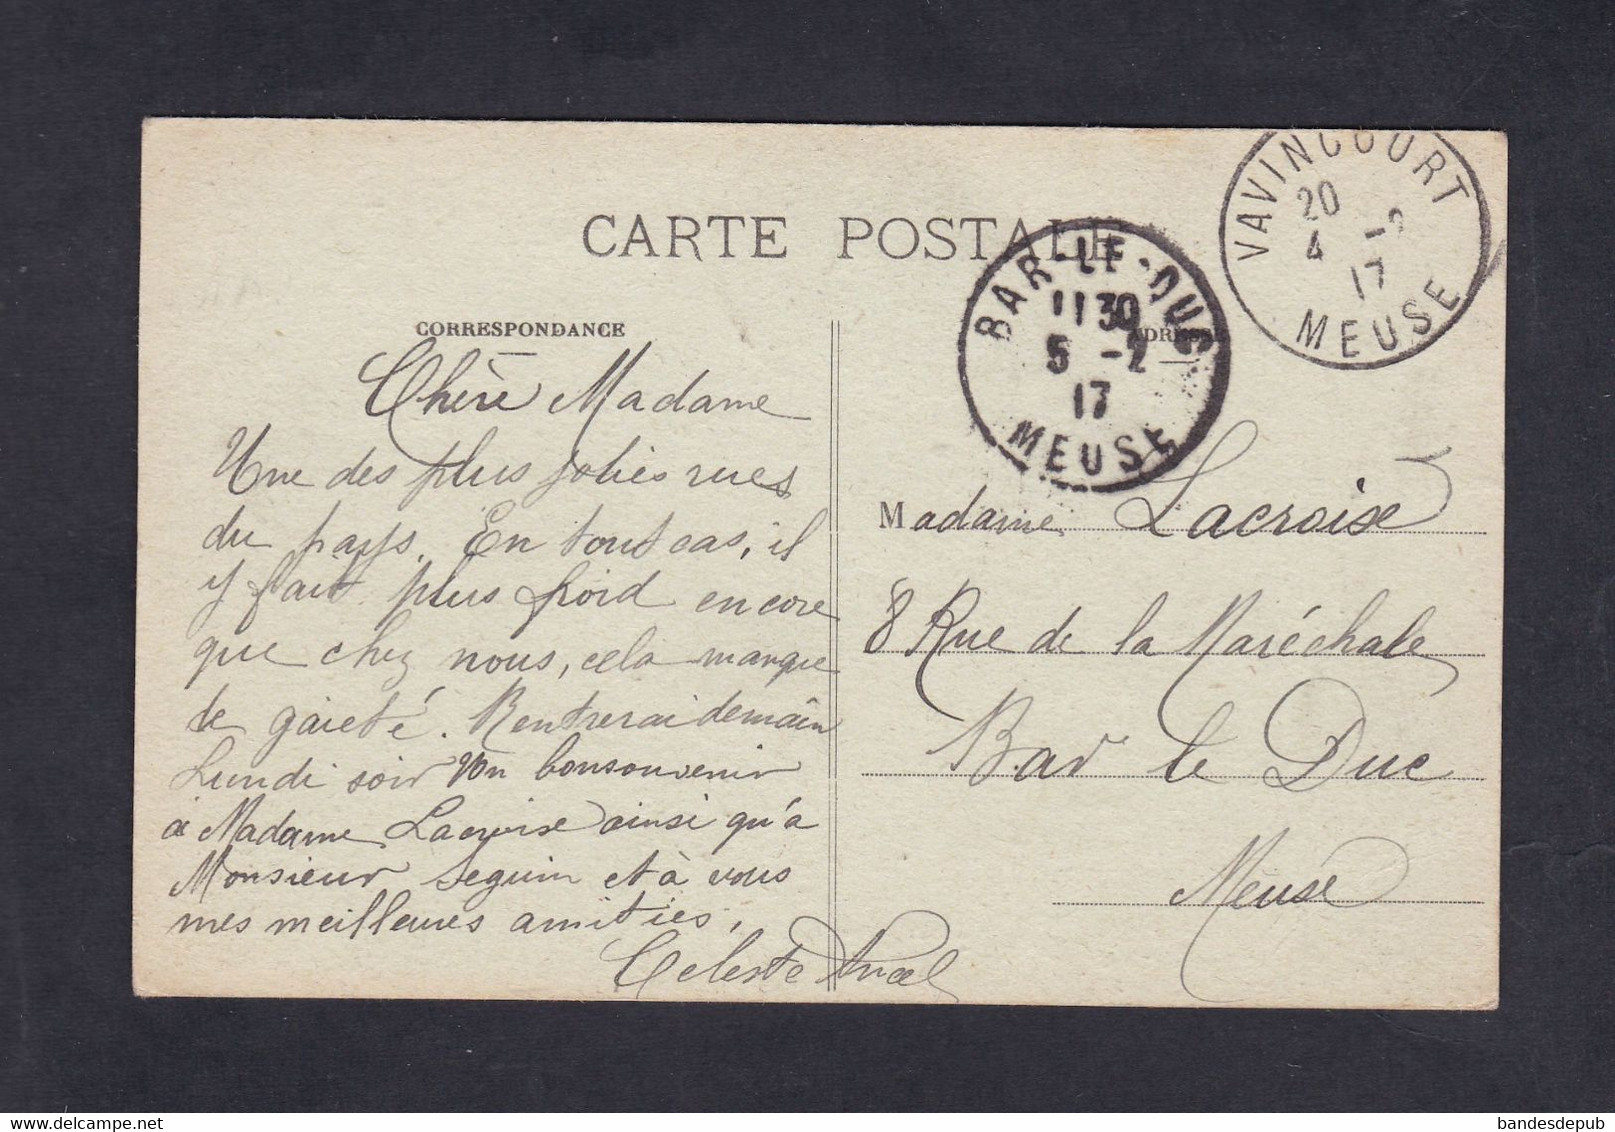 CARTE POSTALE
VAVINCOURT
20
4 -2
17
MEUSE
BAR-LE-DUC
11 30
5 -2
17
MEUSE
CORRESPONDANCE
ADRESSE
Chère Madame
Une des plus jolies rues
du pays. En tout cas, il
y fait plus froid encore
que chez nous, cela manque
de gaieté. Rentrerai demain
Lundi soir Un bonsouvenir
à Madame Lacroise ainsi qu'à
Monsieur Seguin et à vous
mes meilleures amitiés,
Celeste
Madame Lacroise
8 Rue de la Maréchale
Bar le Duc
Meuse
bandesdepub